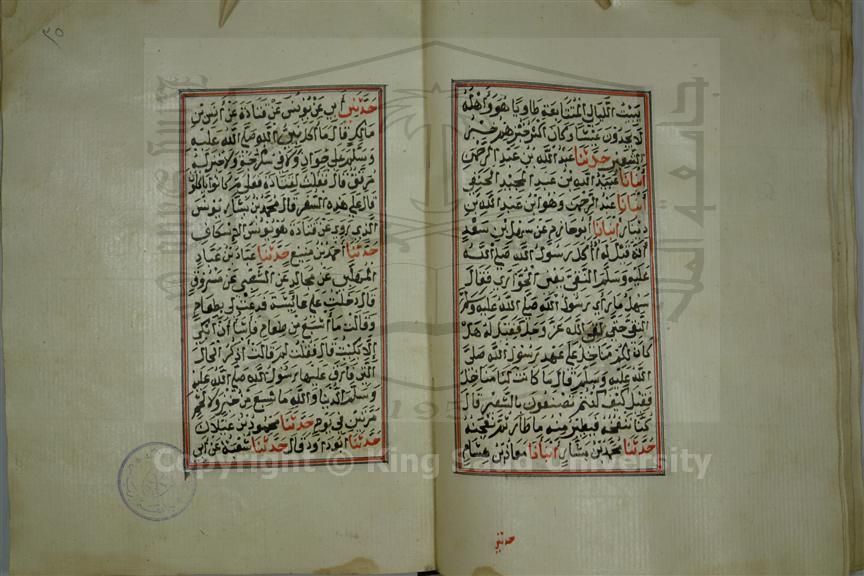 يبيت الليالي المتتابعة طاويا هو وأهله
لا يجدون عشاء وكان أكثر خبزهم خبز
الشعير حدثنا عبد الله بن عبد الرحمن
أنبأنا عبيد الله بن عبد المجيد الحنفي
أنبأنا عبد الرحمن وهو ابن عبد الله بن
دينار أنبأنا أبو حازم عن سهل بن سعد
أنه قيل له أأكل رسول الله صلى الله
عليه وسلم النقي يعني الحواري فقال
سهل ما رأى رسول الله صلى الله عليه وسلم
النقي حتى لقي الله عز وجل فقيل له هل
كانت لكم مناخل على عهد رسول الله صلى
الله عليه وسلم قال ما كانت لنا مناخل
فقيل كيف كنتم تصنعون بالشعير قال
كنا ننفخه فيطير منه ما طار ثم نعجنه
حدثنا محمد بن بشار أنبأنا معاذ بن هشام
حدثني
حدثني أبي عن يونس عن قتادة عن أنس بن
مالك قال ما أكل نبي الله صلى الله عليه
وسلم على خوان ولا في سكرجة ولا خبز له
مرقق قال فقلت لقتادة فعلى م كانوا يأكلون
قال على هذه السفر قال محمد بن بشار يونس
الذي روى عن قتادة هو يونس الإسكاف
حدثنا أحمد بن منيع حدثنا عباد بن عباد
المهلبي عن مجالد عن الشعبي عن مسروق
قال دخلت على عائشة فدعت لي بطعام
وقالت ما أشبع من طعام فأشاء أن أبكي
إلا بكيت قال قلت لم قالت أذكر الحال
التي فارق عليها رسول الله صلى الله عليه
وسلم الدنيا والله ما شبع من خبز ولا لحم
مرتين في يوم حدثنا محمود بن غيلان
حدثنا أبو داود قال حدثنا شعبة عن أبي
جامعة الملك سعود
1957
Copyright © King Saud University